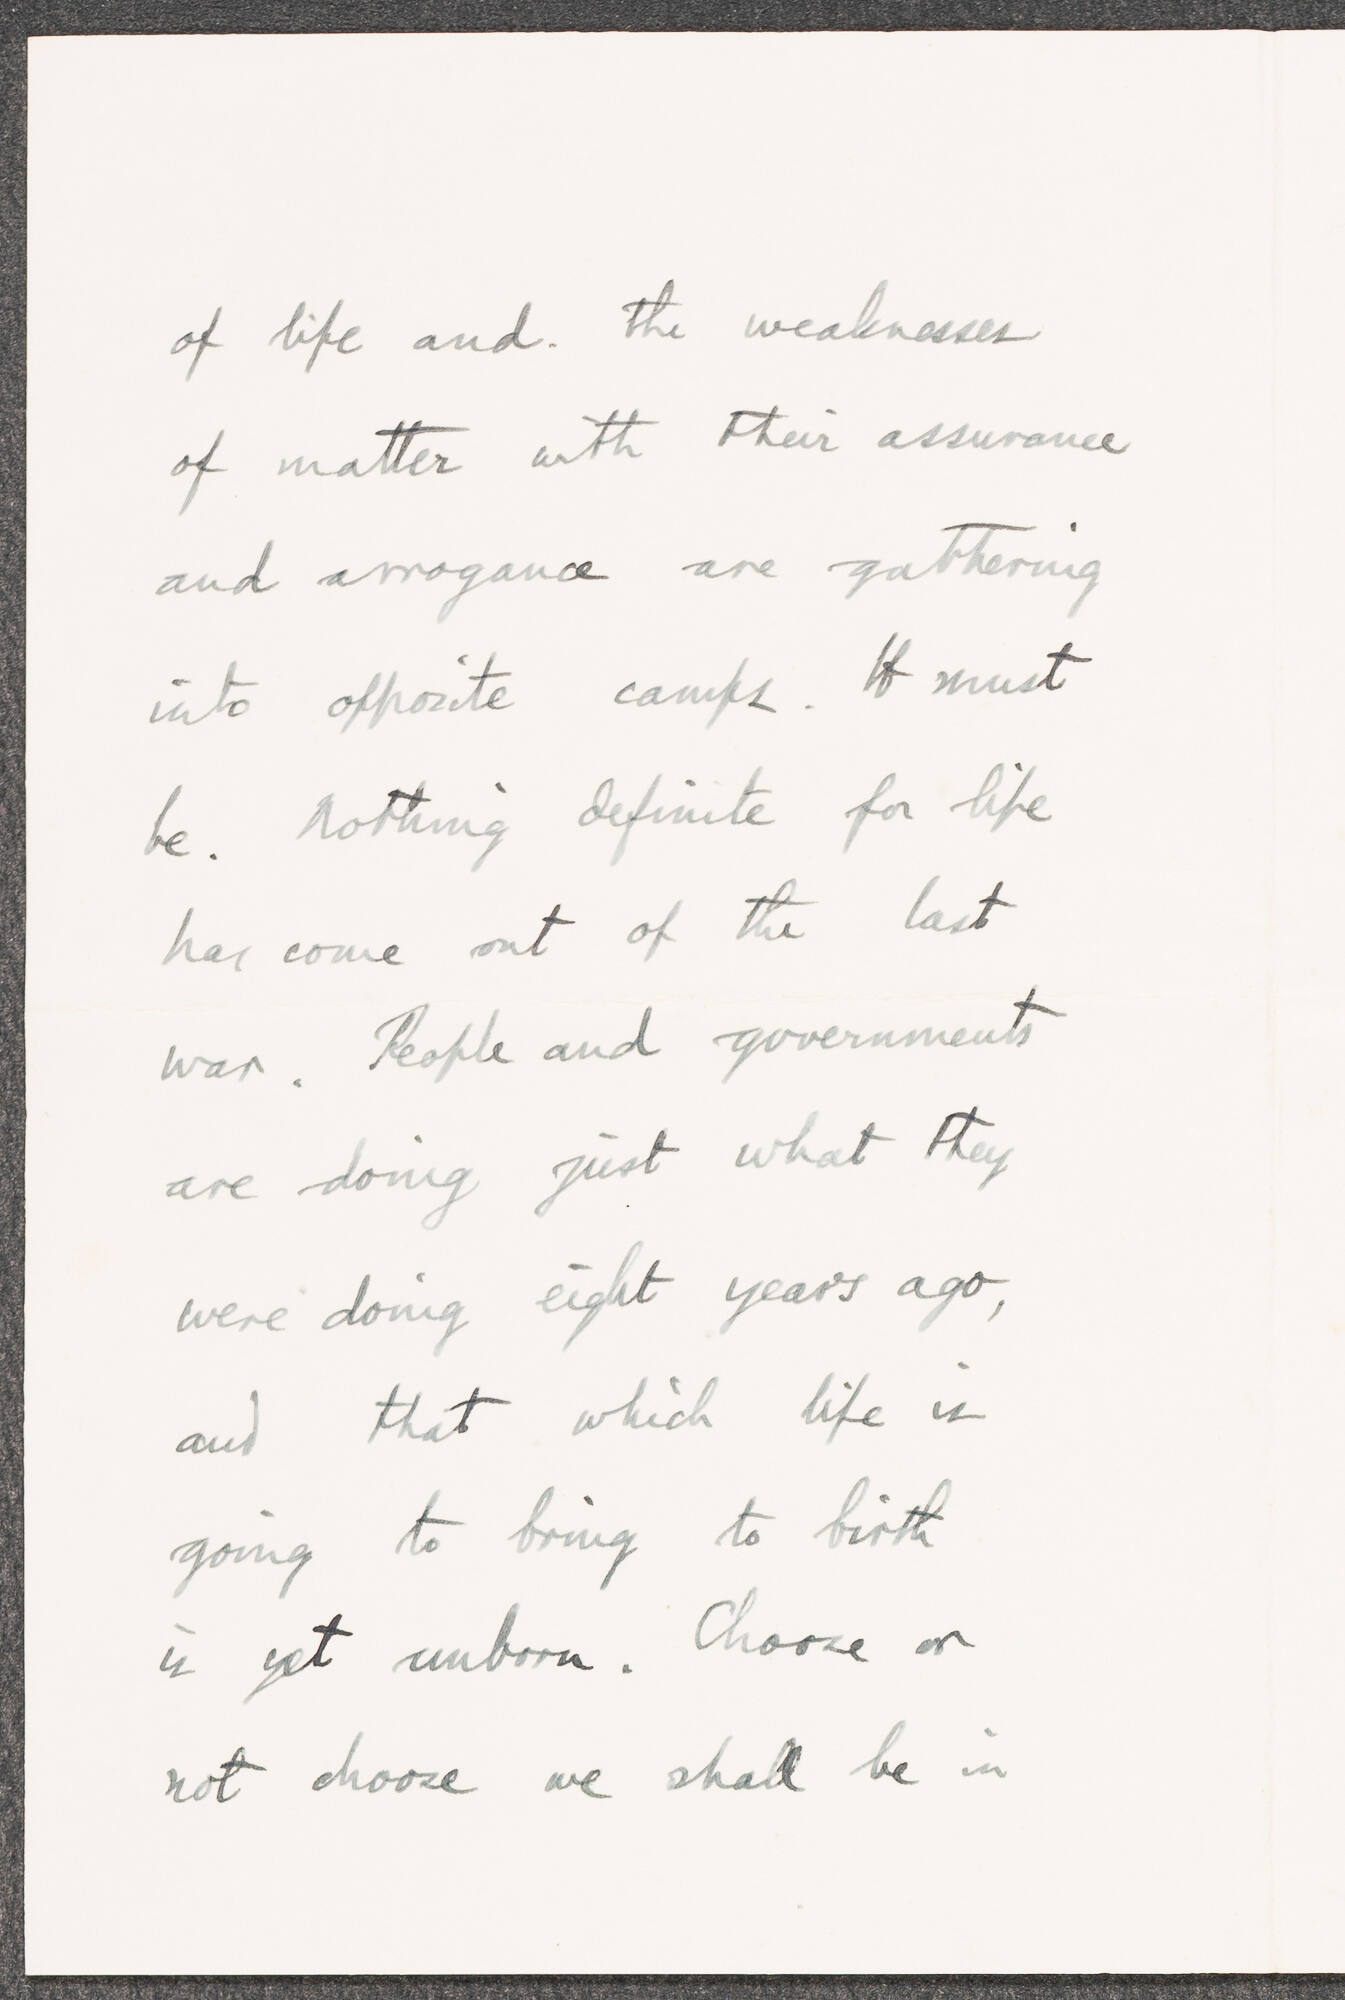 of life and. the weaknesses
of matter with their assurance
and arrogance are gathering
into opposite camps. It must
be. Nothing definite for life
has come out of the last
war. People and governments
are doing just what they
were doing eight years ago,
and that which life is
going to bring to birth
is yet unborn. Choose or
not choose we shall be in